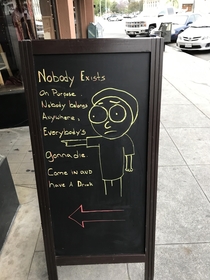 Nobody Exists
on Purpose.
Nobody belongs
Anywhere,
Everybody's
Gonna die.
Come in and
have A Drink